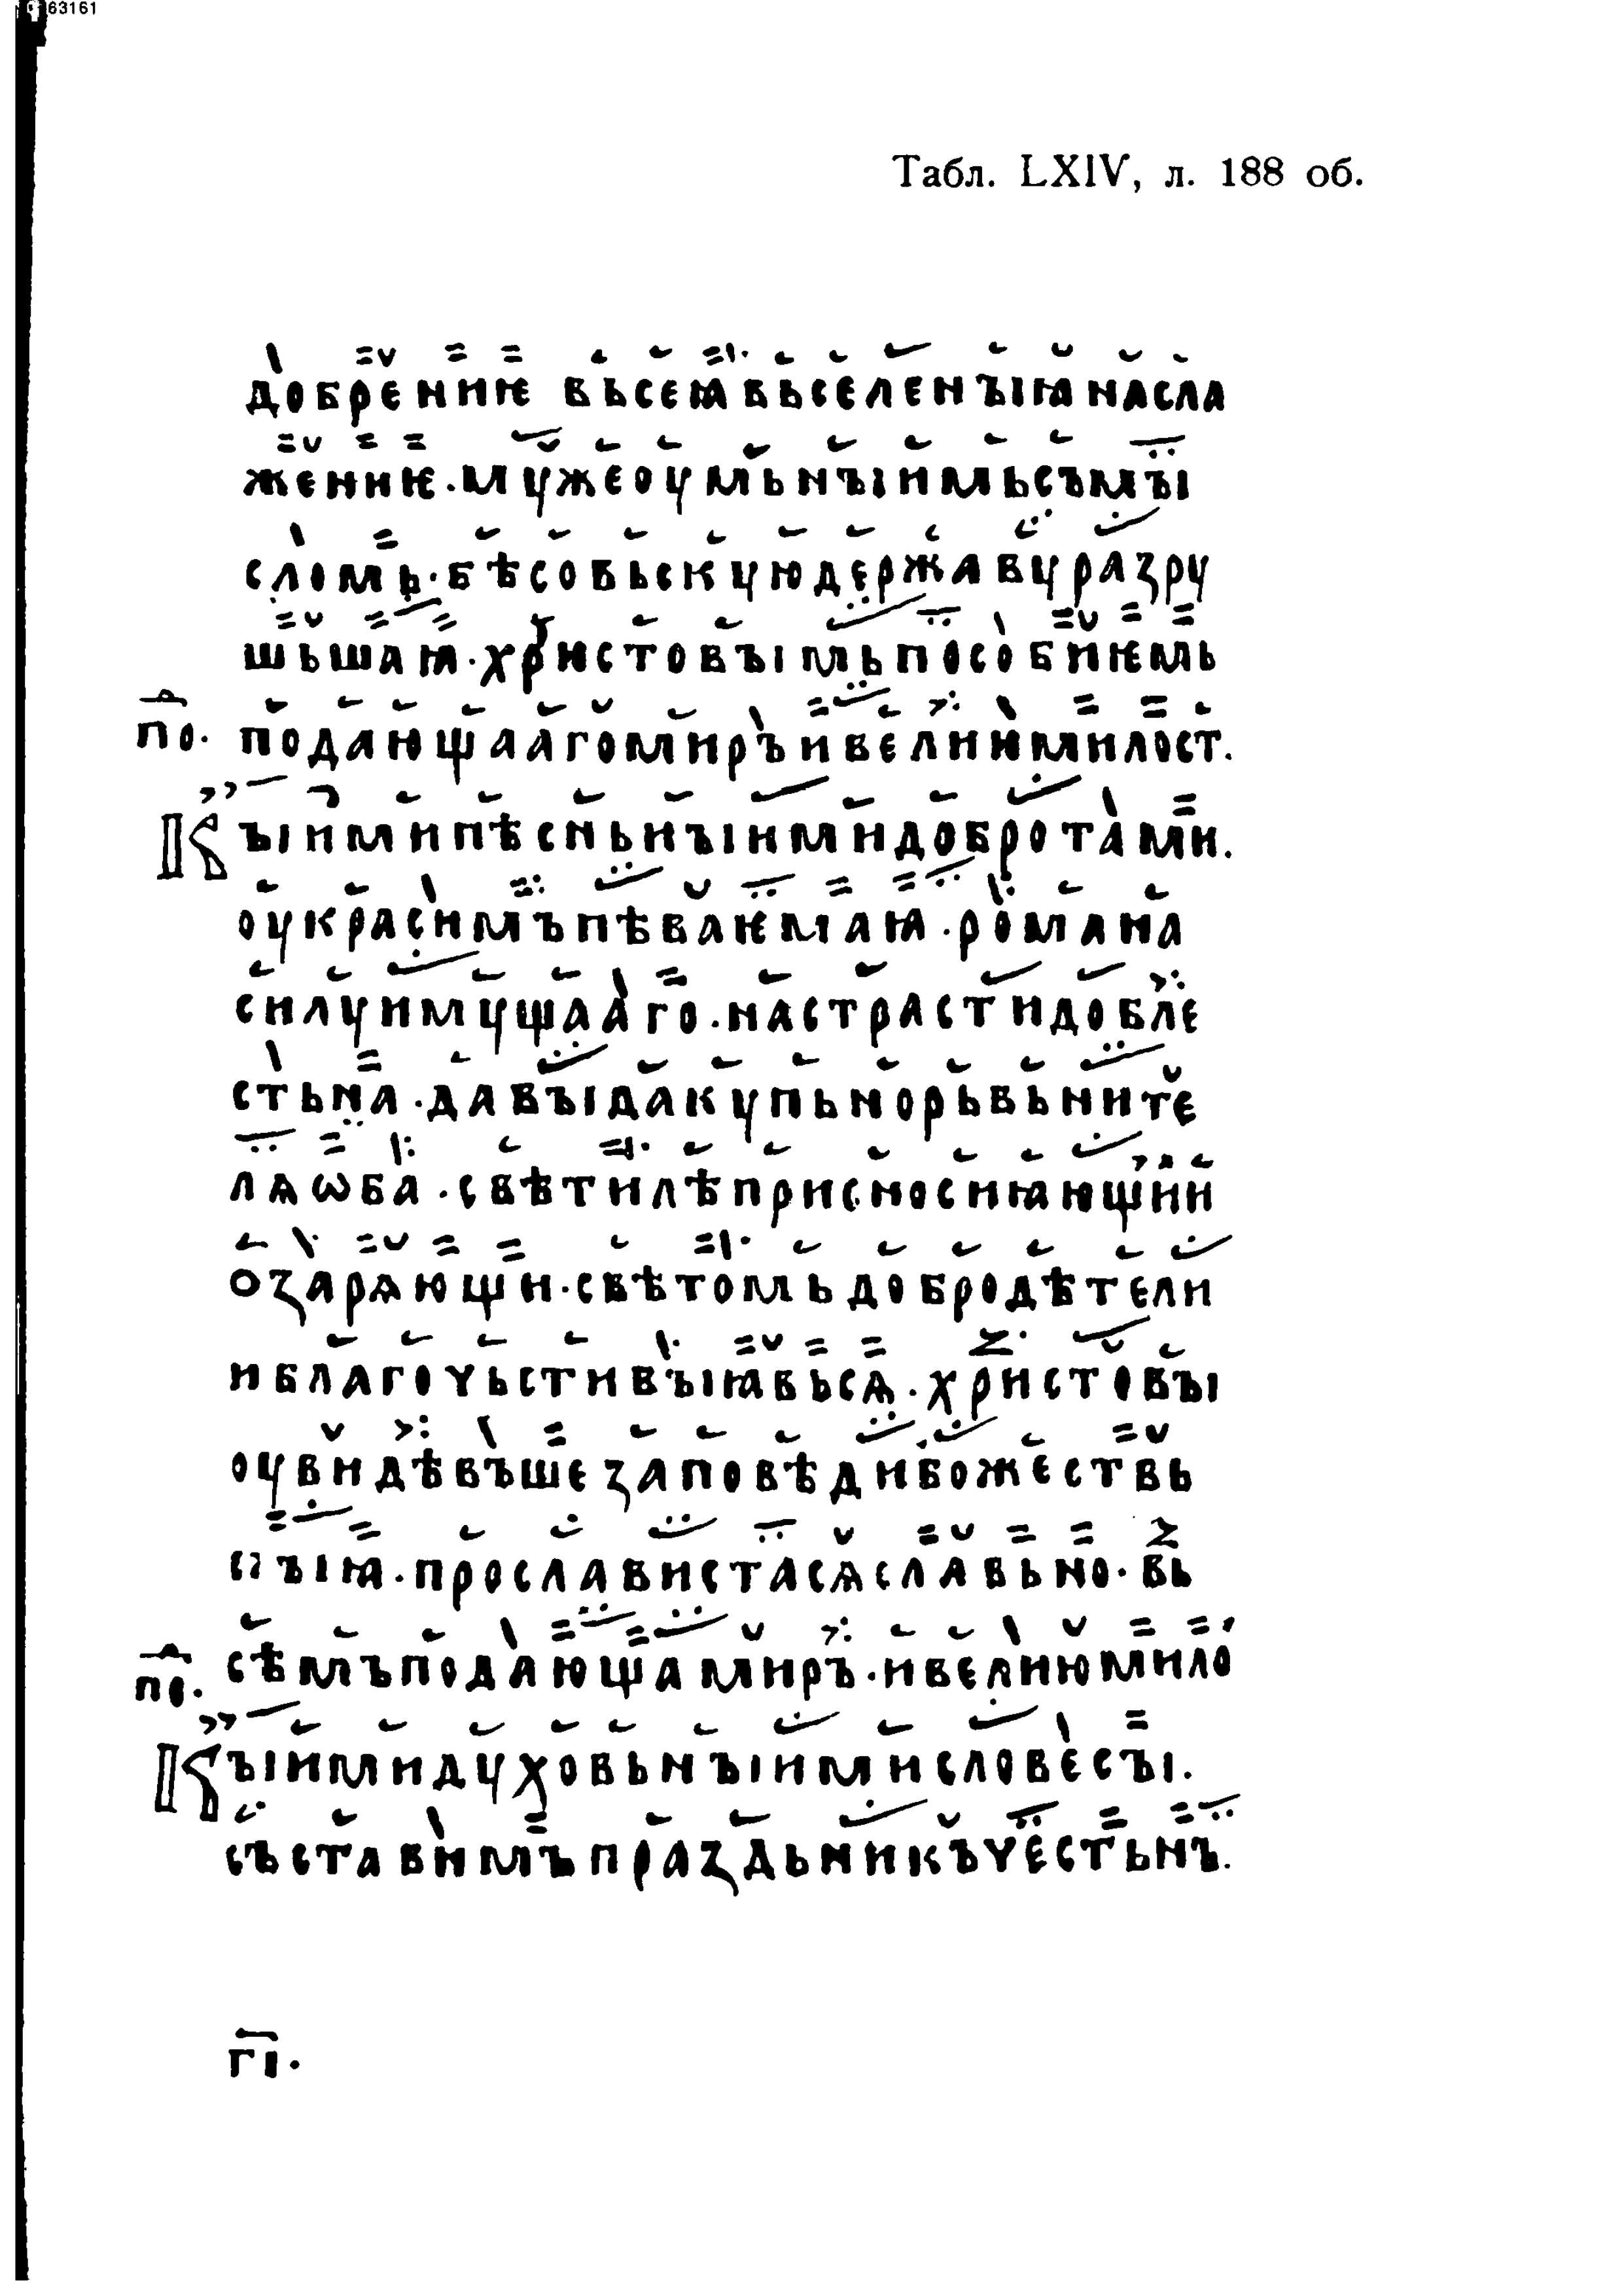 63161
Табл. LXIV, л. 188 об.
добрениѥ вьсеꙗ вьселенъіꙗ насла
жениѥ · мужеоумьнъіимь съмъі
сломь · бѣсовьскую державу разру
шьшаꙗ · христовъімь пособиѥмь
по. подающааго миръ и велии милост.
Къіими пѣсньнъіими добротами.
оукрасимъ пѣваѥмаꙗ · романа
силу имущааго · на страсти добле
стьна · давъіда купьно рьвьните
лѧ ѡба · свѣтилѣ присносиꙗющии
озарѧющи · свѣтомь добродѣтели
и благочьстивъіꙗ вьсѧ · христовъі
оувидѣвъше заповѣди божествь
нъіꙗ · прослависта сѧ славьно · вь
по. сѣмъ подающа миръ · и велию мило
Къіими духовьнъіими словесъі.
съставимъ праздьникъ чьстьнъ.
гі.